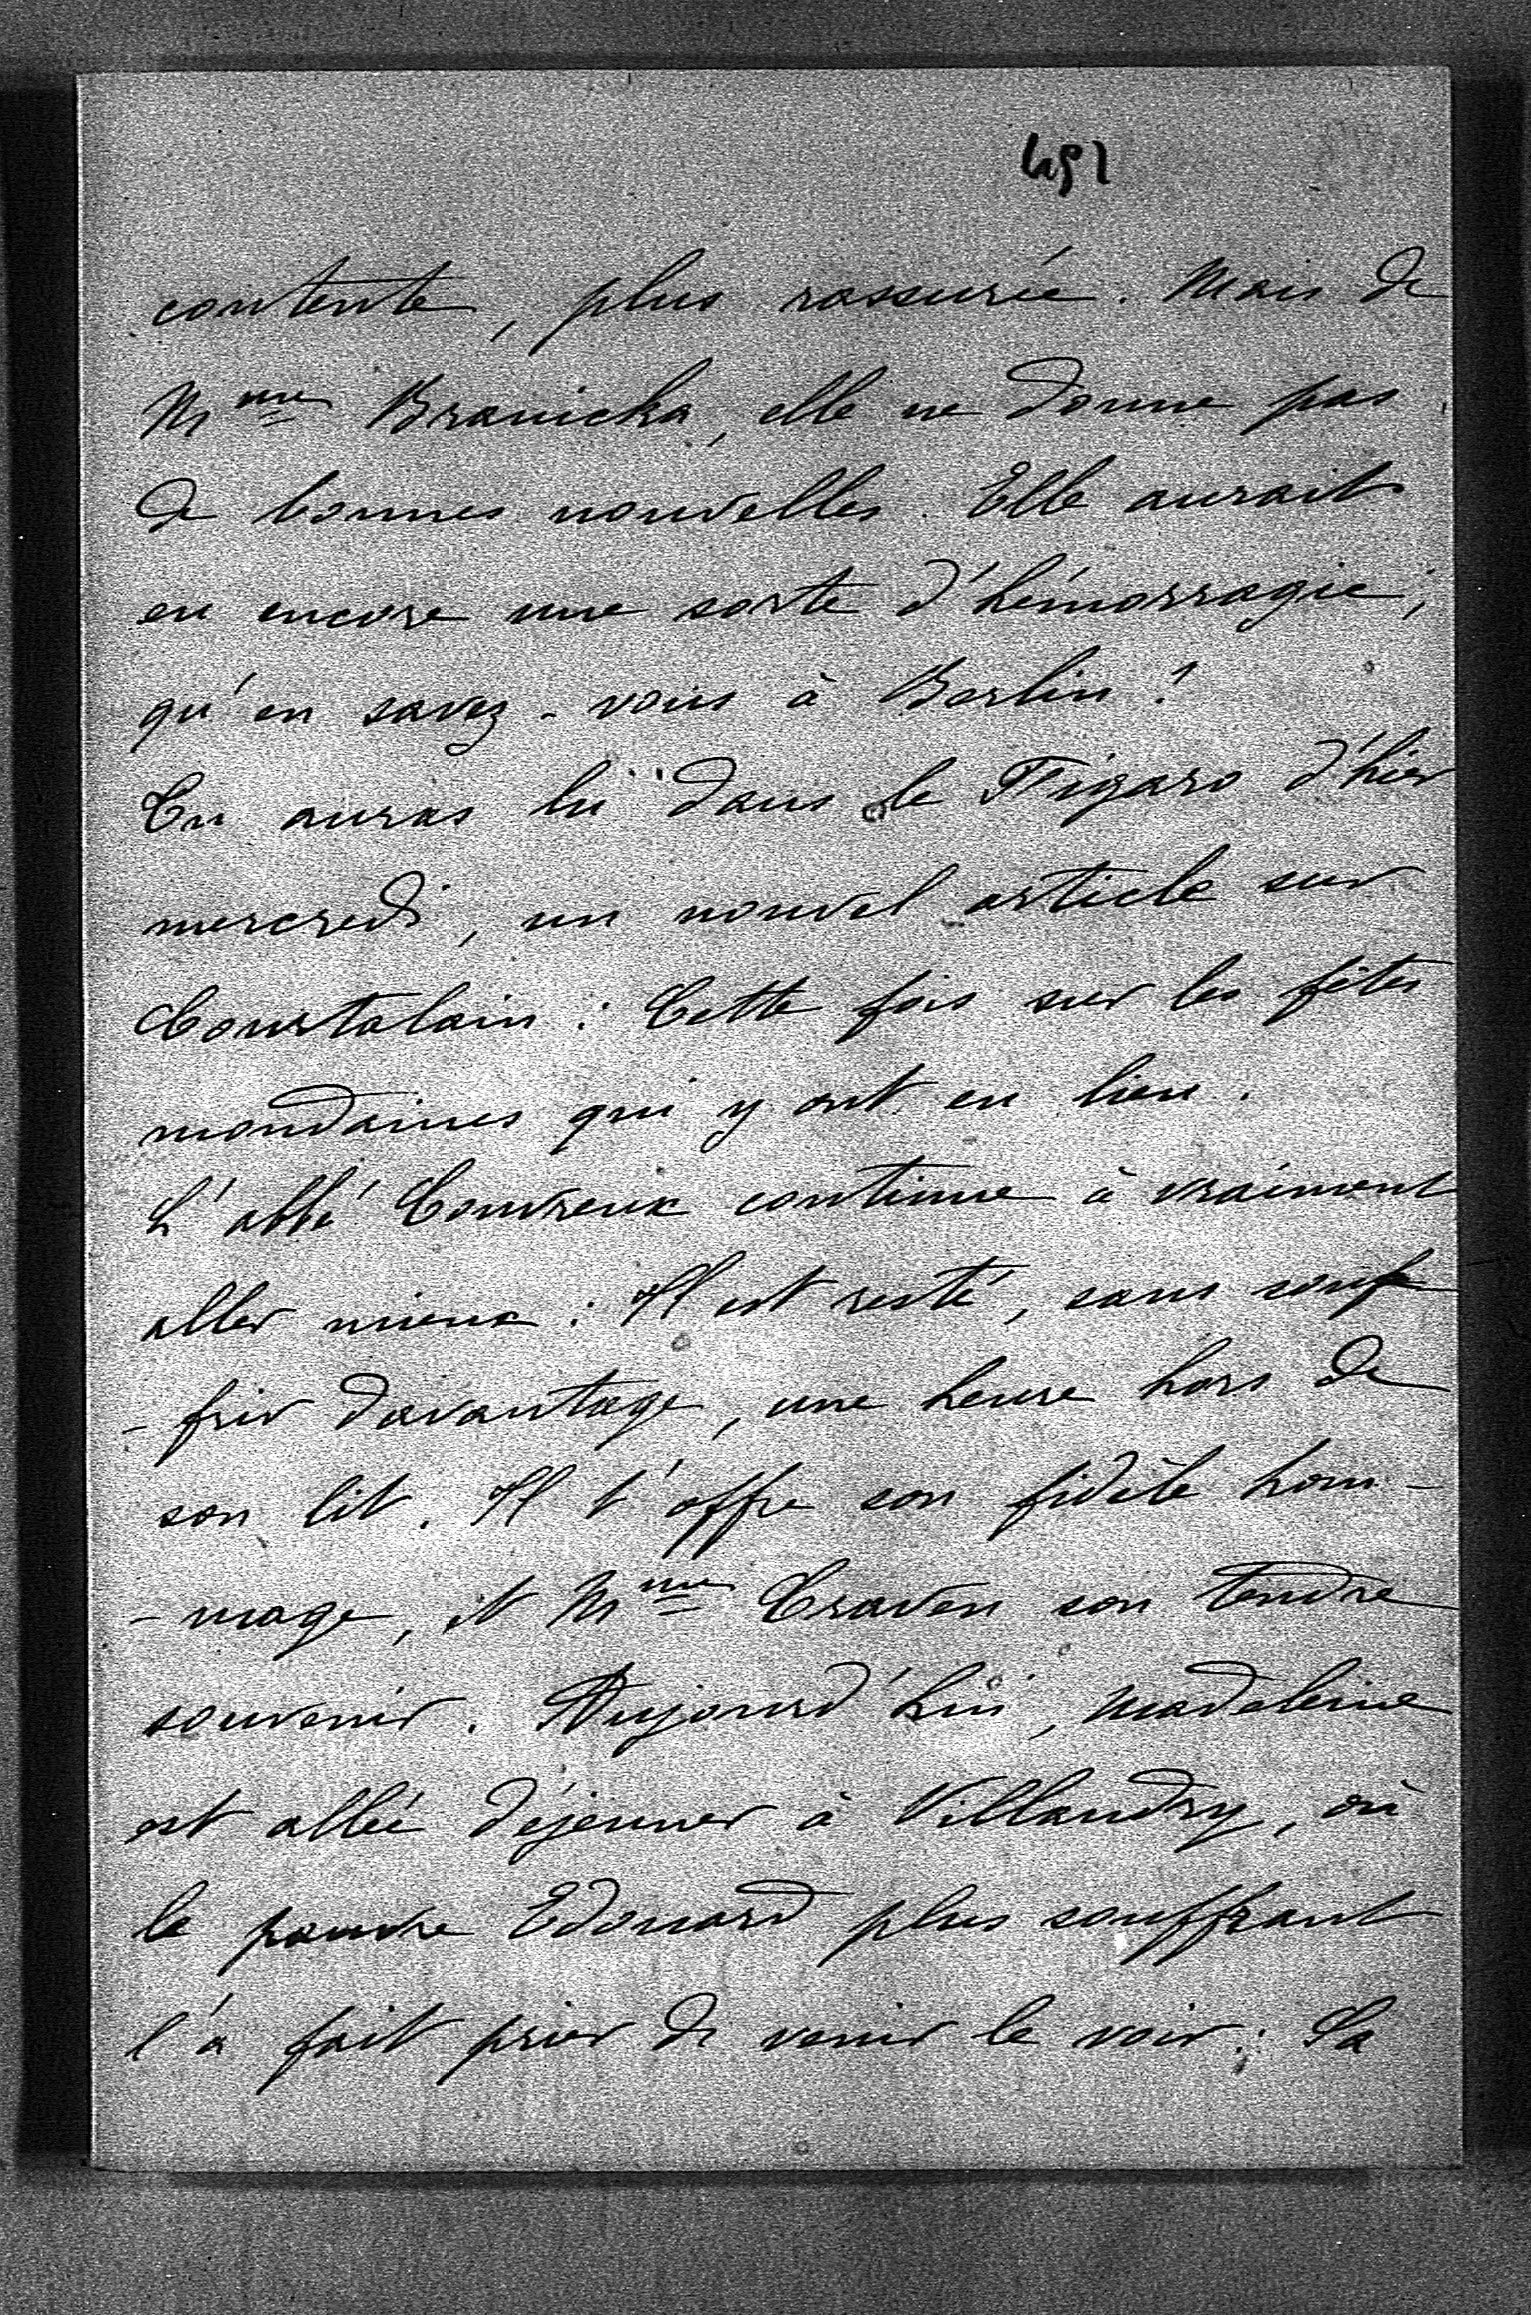 491
contente, plus rassurée. Mais de
Mme Branicka, elle ne donne pas
de bonnes nouvelles. Elle aurait
eu encore une sorte d'hémorragie;
qu'en savez-vous à Berlin ?
Tu auras lu dans le Figaro d'hier
mercredi, un nouvel article sur
Courtalain : Cette fois sur les fêtes
mondaines qui y ont eu lieu.
L'abbé Couvreux continue à vraiment
aller mieux : Il est resté, sans souf
-frir davantage, une heure hors de
son lit. Il t'offre son fidèle hom-
-mage, et Mme Craven son tendre
souvenir. Aujourd'hui, Madeleine
est allée déjeuner à Villandry, où
le pauvre Edouard plus souffrant
l'a fait prier de venir le voir : Sa